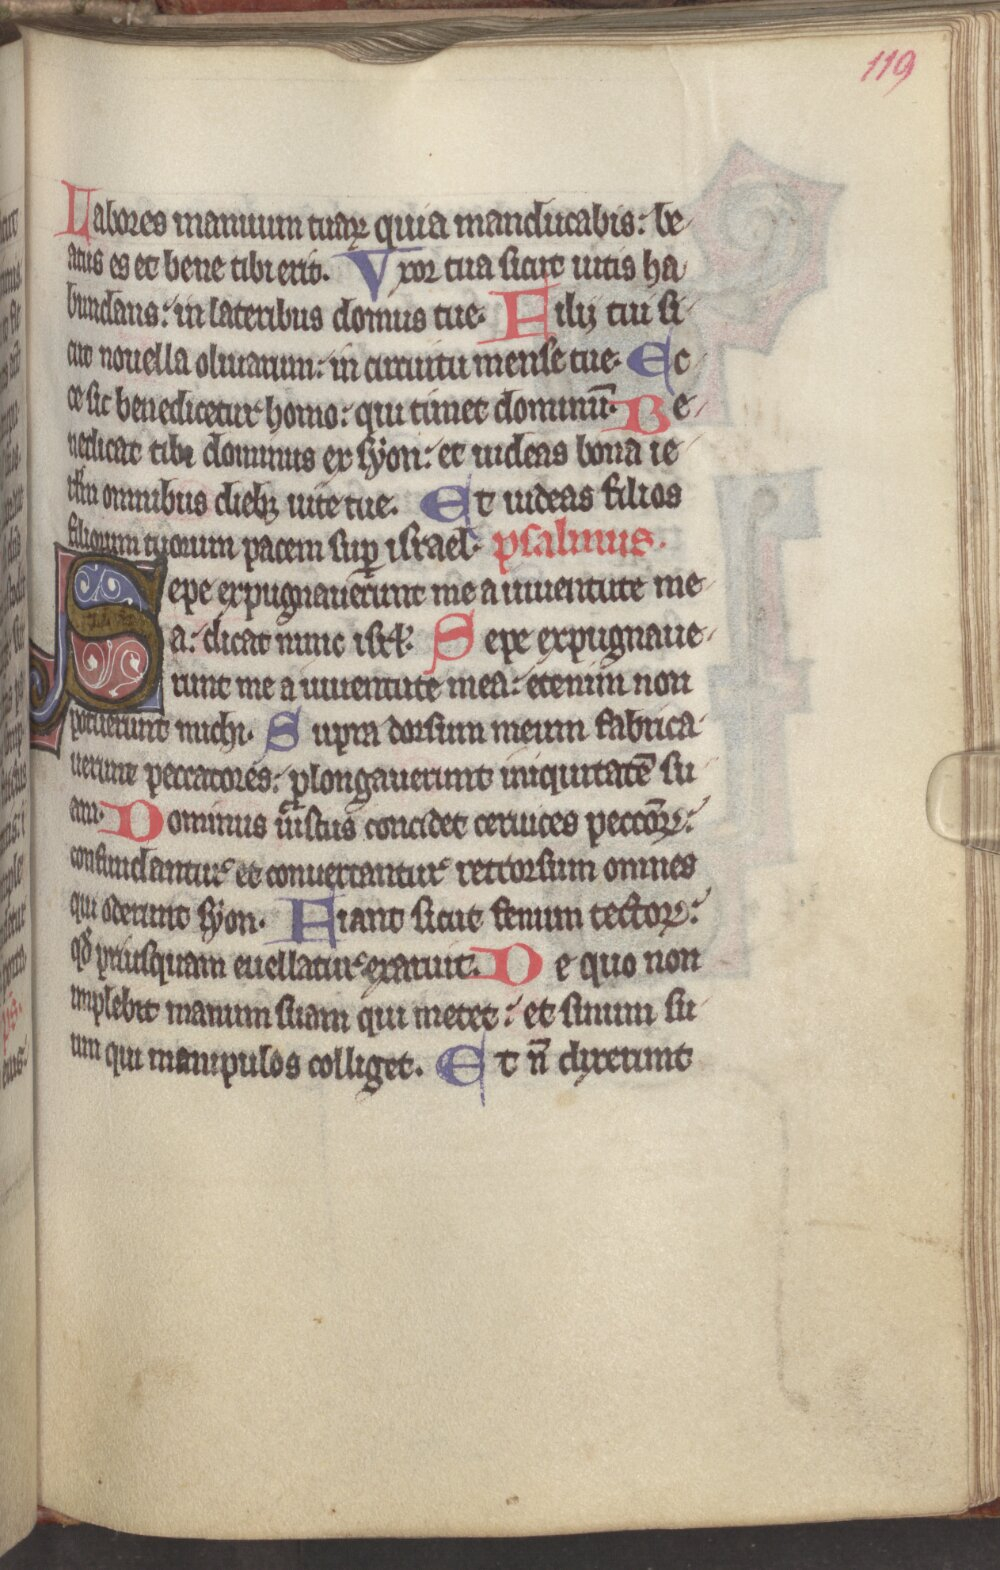 119
Labores manuum tuaꝝ quia manducabis: be
atus es et bene tibi erit. Vxor tua sicut uitis ha
bundans: in lateribus domus tue. Filij tui si
cut nouella oliuarum: in circuitu mense tue. Ec
ce sic benedicetur homo: qui timet dominū. Be
nedicat tibi dominus ex syon: et uideas bona ie
rl̄m omnibus dieb; uite tue. Et uideas filios
filiorum tuorum pacem suꝑ israel. psalmus.
Sepe expugnauerunt me a iuuentute me
a: dicat nunc isrł. Sepe expugnaue
runt me a iuuentute mea: etenim non
potuerunt michi. Supra dorsum meum fabrica
uerunt peccatores: ꝓlongauerunt iniquitatē su
am. Dominus iustus concidet ceruices peccōꝝ:
confundantur et conuertantur retrorsum omnes
qui oderunt syon. Fiant sicut fenum tectoꝝ:
qd̄ priusquam euellatur exaruit. De quo non
implebit manum suam qui metet: et sinum su
um qui manipulos colliget. Et n̄ dixerunt